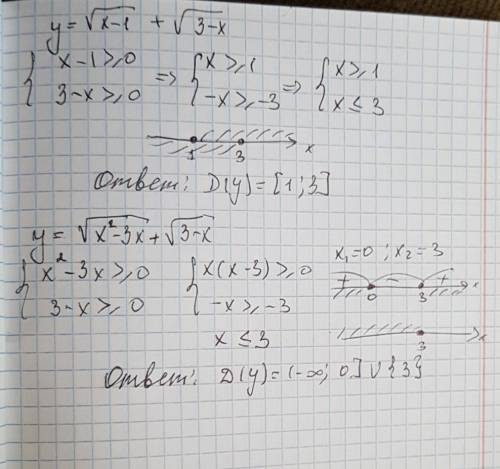 y = √x-1 + √3-x
{ x-1 ≥ 0 => { x ≥ 1 => { x ≥ 1
3-x ≥ 0 -x ≥ -3 x ≤ 3
1 3 x
Ответ: D(y) = [1; 3]
y = √x²-3x + √3-x
x₁=0 ; x₂=3
{ x²-3x ≥ 0 { x(x-3) ≥ 0 + - +
0 3 x
3-x ≥ 0 -x ≥ -3
x ≤ 3 3 x
Ответ: D(y) = (-∞; 0] ∪ {3}